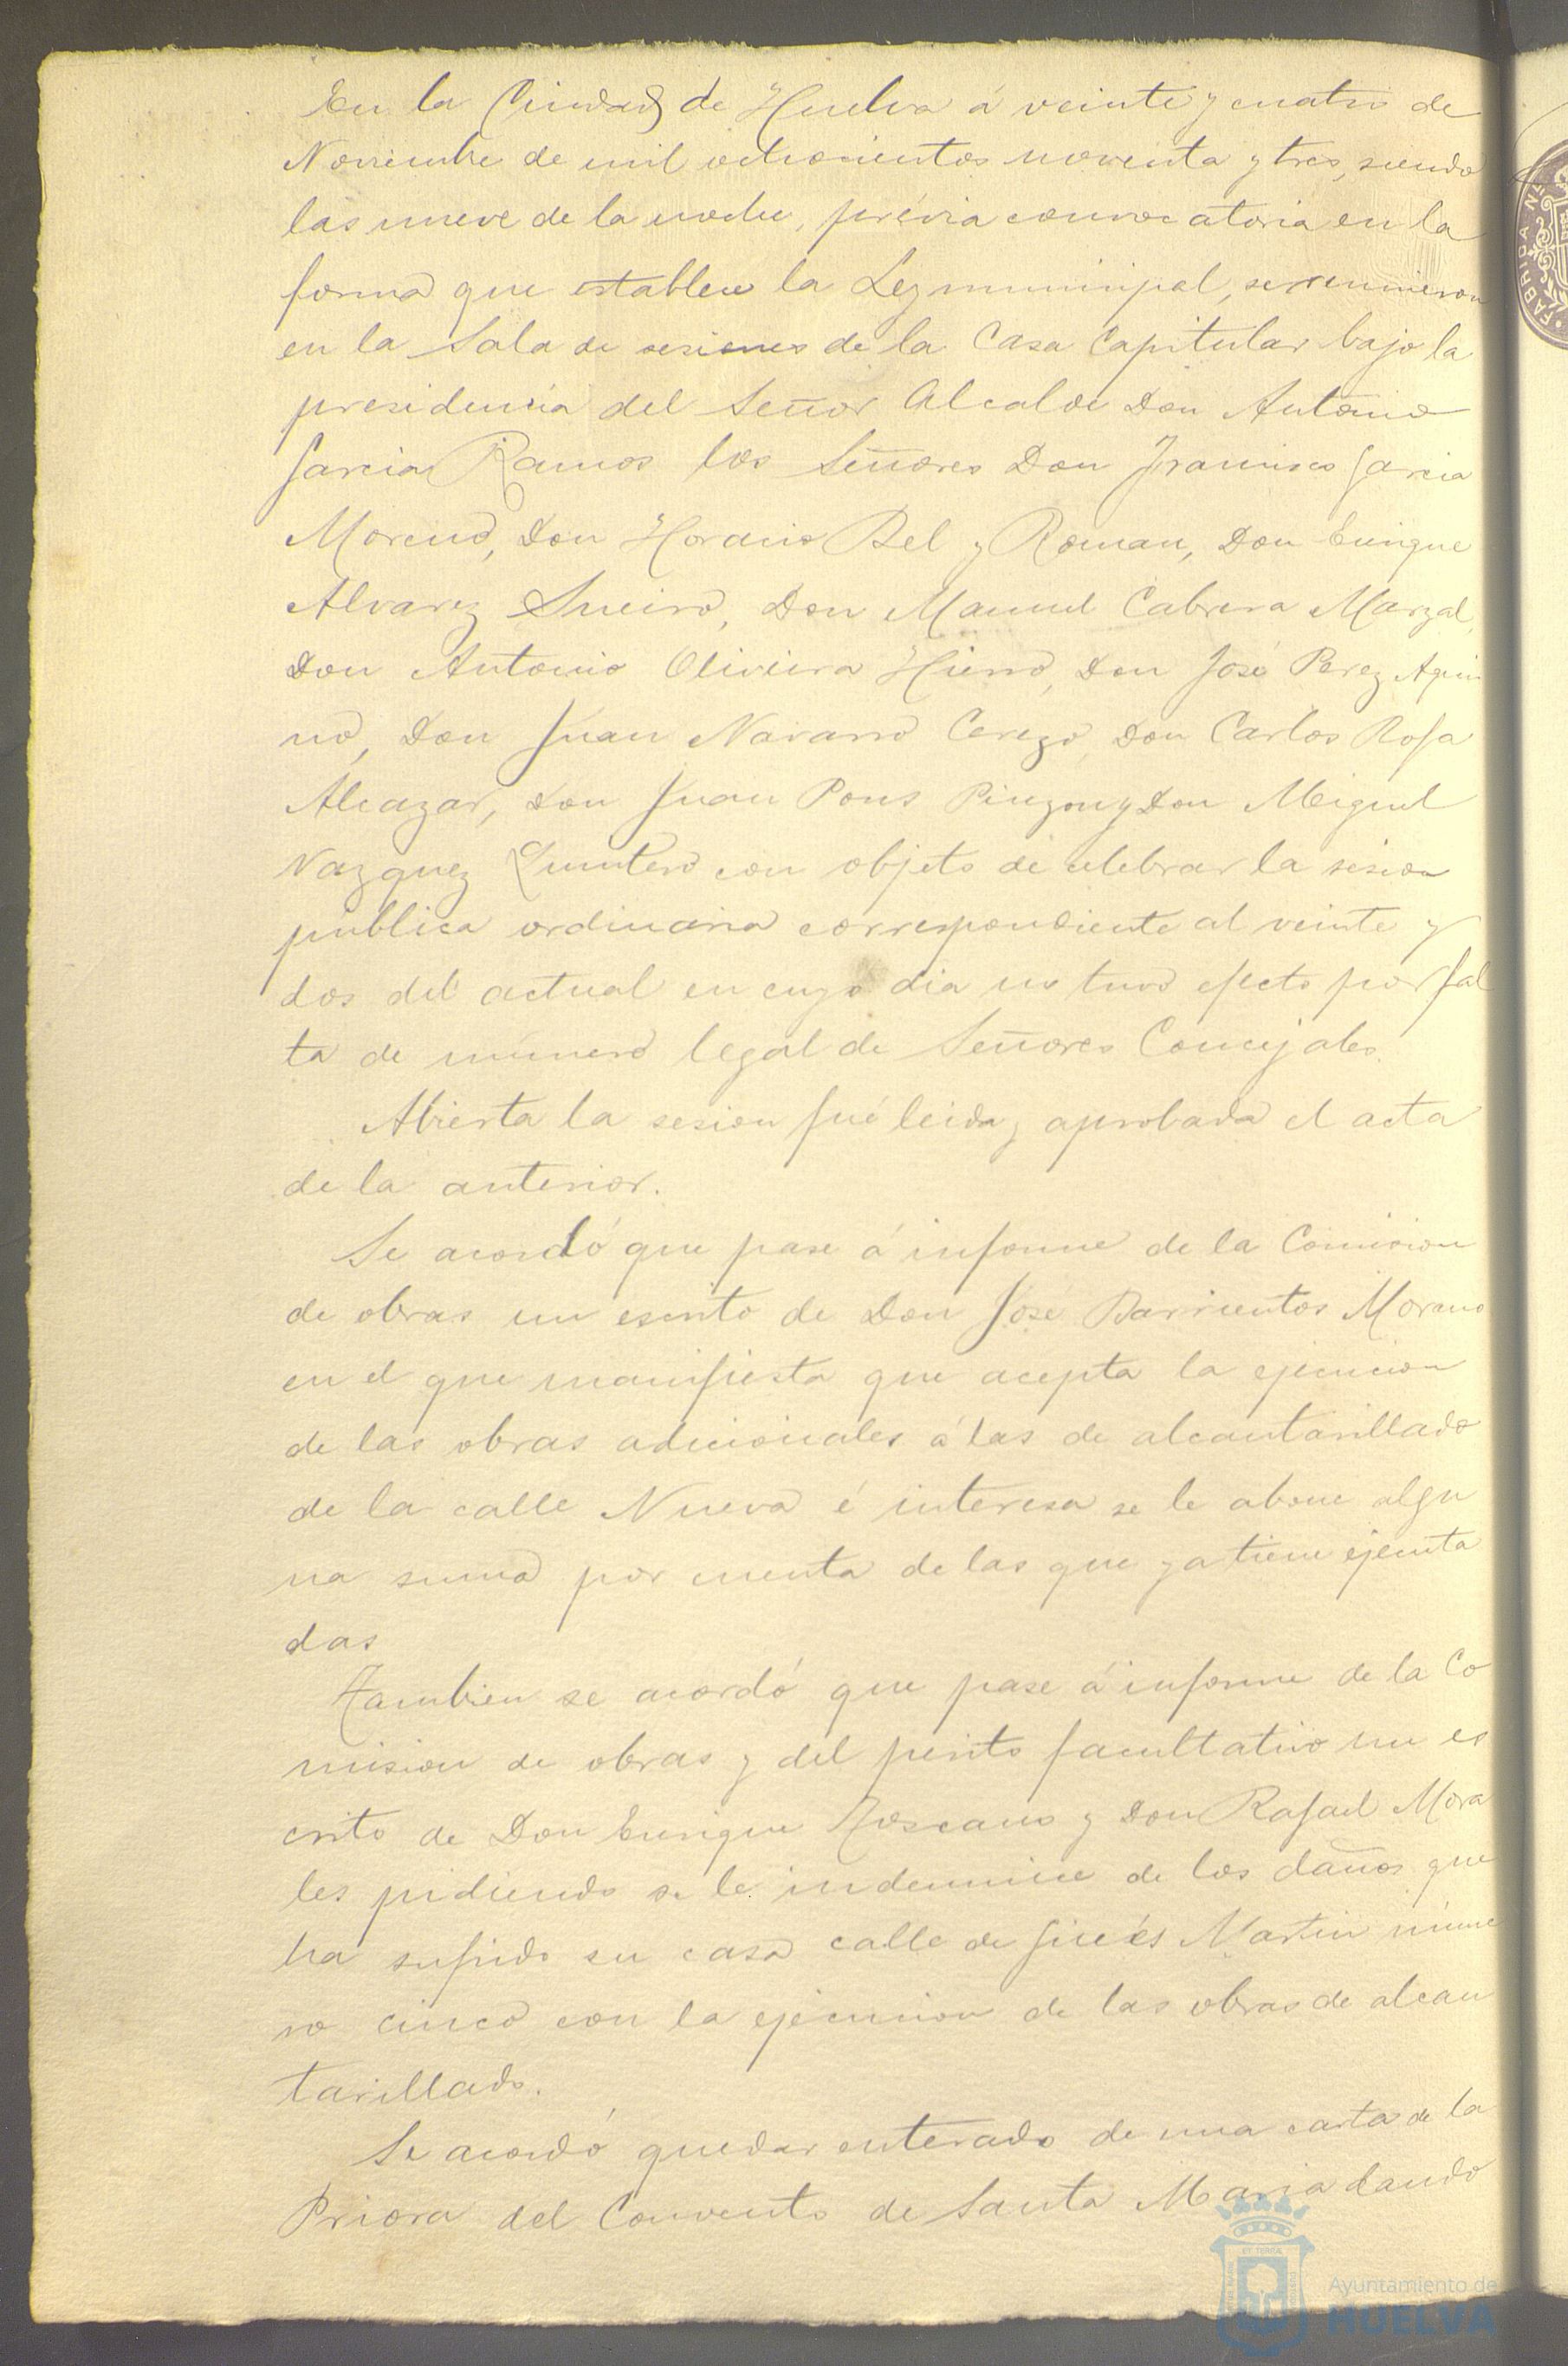 En la Ciudad de Huelva á veinte y cuatro de
Noviembre de mil ochocientos noventa y tres, siendo
las nueve de la noche, prévia convocatoria en la
forma que establece la Ley municipal, se reunieron
en la Sala de sesiones de la Casa Capitular bajo la
presidencia del Señor Alcalde Don Antonio
Garcia Ramos los Señores Don Francisco Garcia
Moreno, Don Horacio Bel y Roman, Don Enrique
Alvarez Sueiro, Don Manuel Cabrera Marzal,
Don Antonio Oliveira Hierro, Don José Perez Aqui
no, Don Juan Navarro Cerezo, Don Carlos Rofa
Alcazar, Don Juan Pons Pinzon y Don Miguel
Vazquez Quintero con objeto de celebrar la sesion
publica ordinaria correspondiente al veinte y
dos del actual en cuyo dia no tuvo efecto por fal
ta de número legal de Señores Concejales.
Abierta la sesion fué leida y aprobada el acta
de la anterior.
Se acordó que pase á informe de la Comision
de obras un escrito de Don José Barrientos Moreno
en el que manifiesta que acepta la ejecucion
de las obras adicionales á las de alcantarillado
de la calle Nueva é interesa se le abone algu
na suma por cuenta de las que ya tiene ejecuta
das
Tambien se acordó que pase á informe de la Co
mision de obras y del perito facultativo un es
crito de Don Enrique Toscano y Don Rafael Mora
les pidiendo se le indemnice de los daños que
ha sufrido su casa calle de Ginés Martin núme
ro cinco con la ejecucion de las obras de alcan
tarillado.
Se acordó quedar enterado de una carta de la
Priora del Convento de Santa Maria dando
Ayuntamiento de
HUELVA
FABRICA N